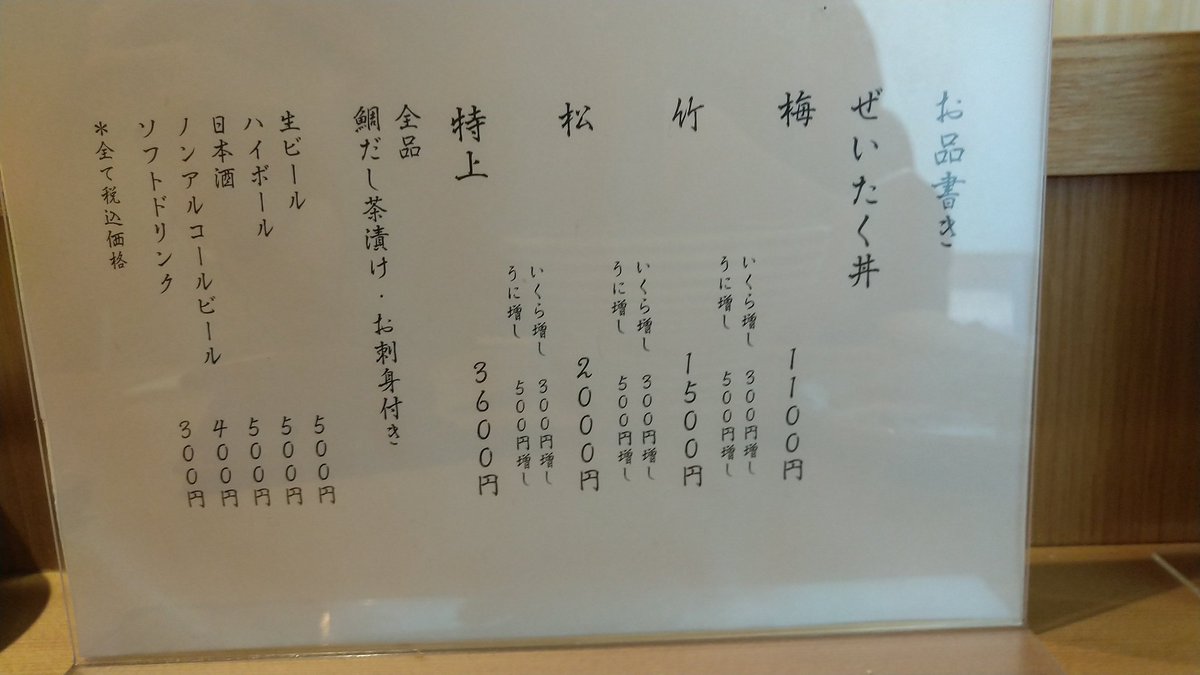 お品書き
ぜいたく丼
梅 1100円
いくら増し 300円増し
うに増し 500円増し
竹 1500円
いくら増し 300円増し
うに増し 500円増し
松 2000円
いくら増し 300円増し
うに増し 500円増し
特上 3600円
全品
鯛だし茶漬け・お刺身付き
生ビール 500円
ハイボール 500円
日本酒 500円
ノンアルコールビール 400円
ソフトドリンク 300円
*全て税込価格